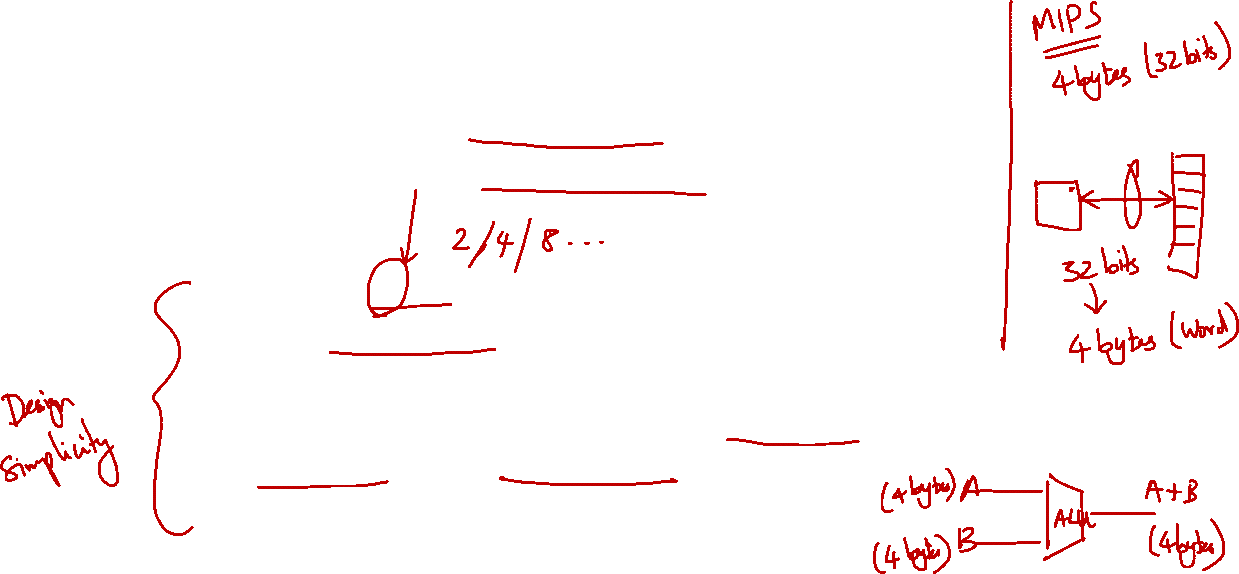 MIPS
4 bytes (32 bits)
2/4/8...
32 bits
4 bytes (Word)
Design
Simplicity
(4 bytes) A
A+B
ALU
(4 bytes) B
(4 bytes)